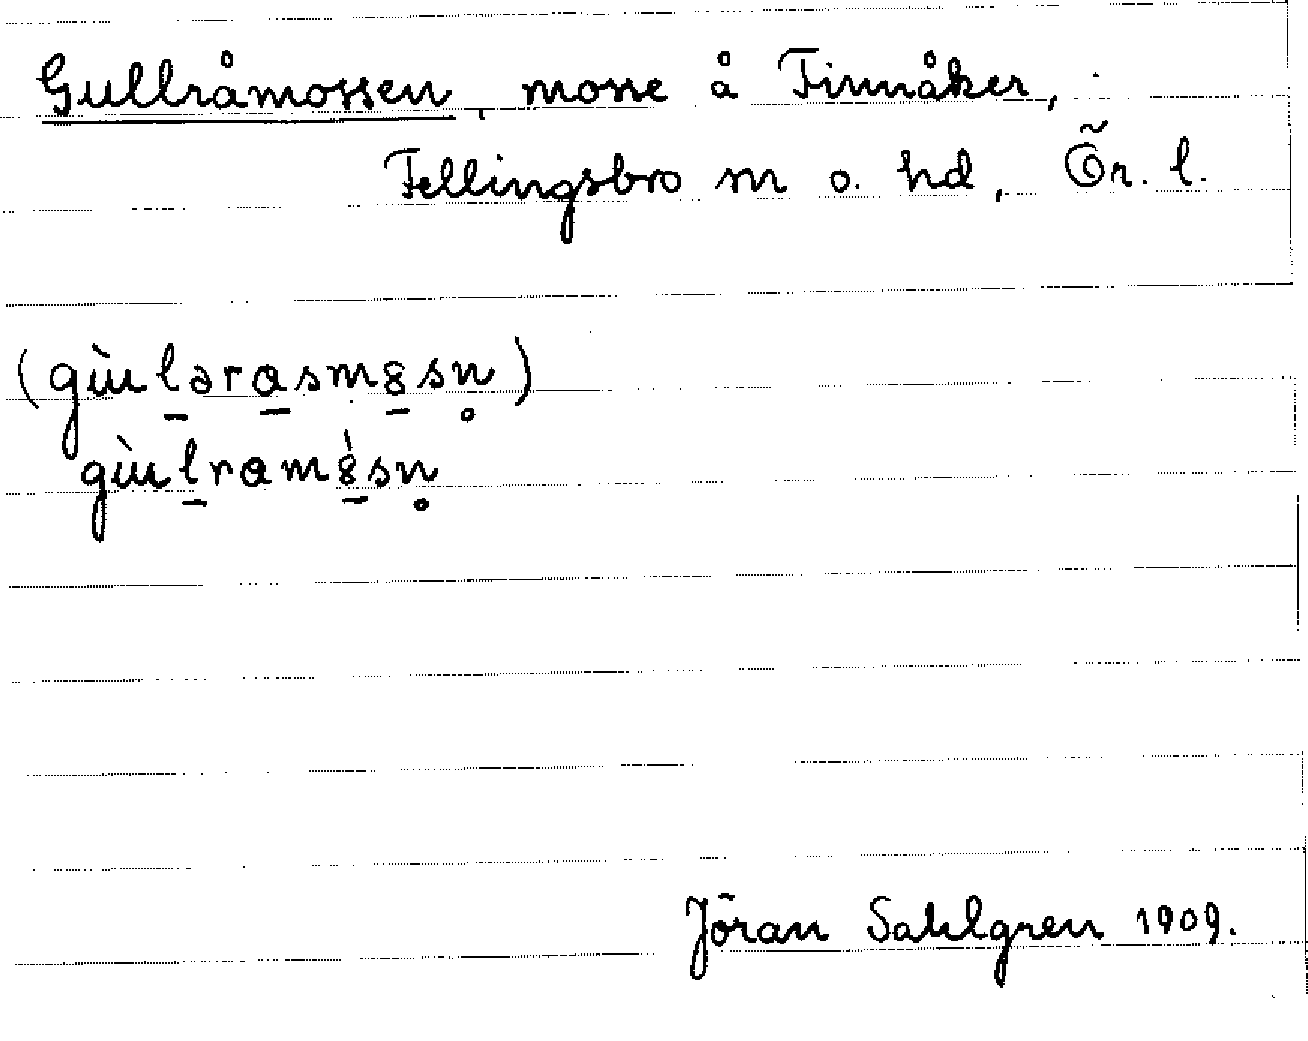 Gullråmossen, mosse å Finnåker,
Fellingsbro sn o. hd, Ör. l.
(gùu̇lərasm8sn̥)
gùu̇lram8̀sn̥
Jöran Sahlgren 1909.